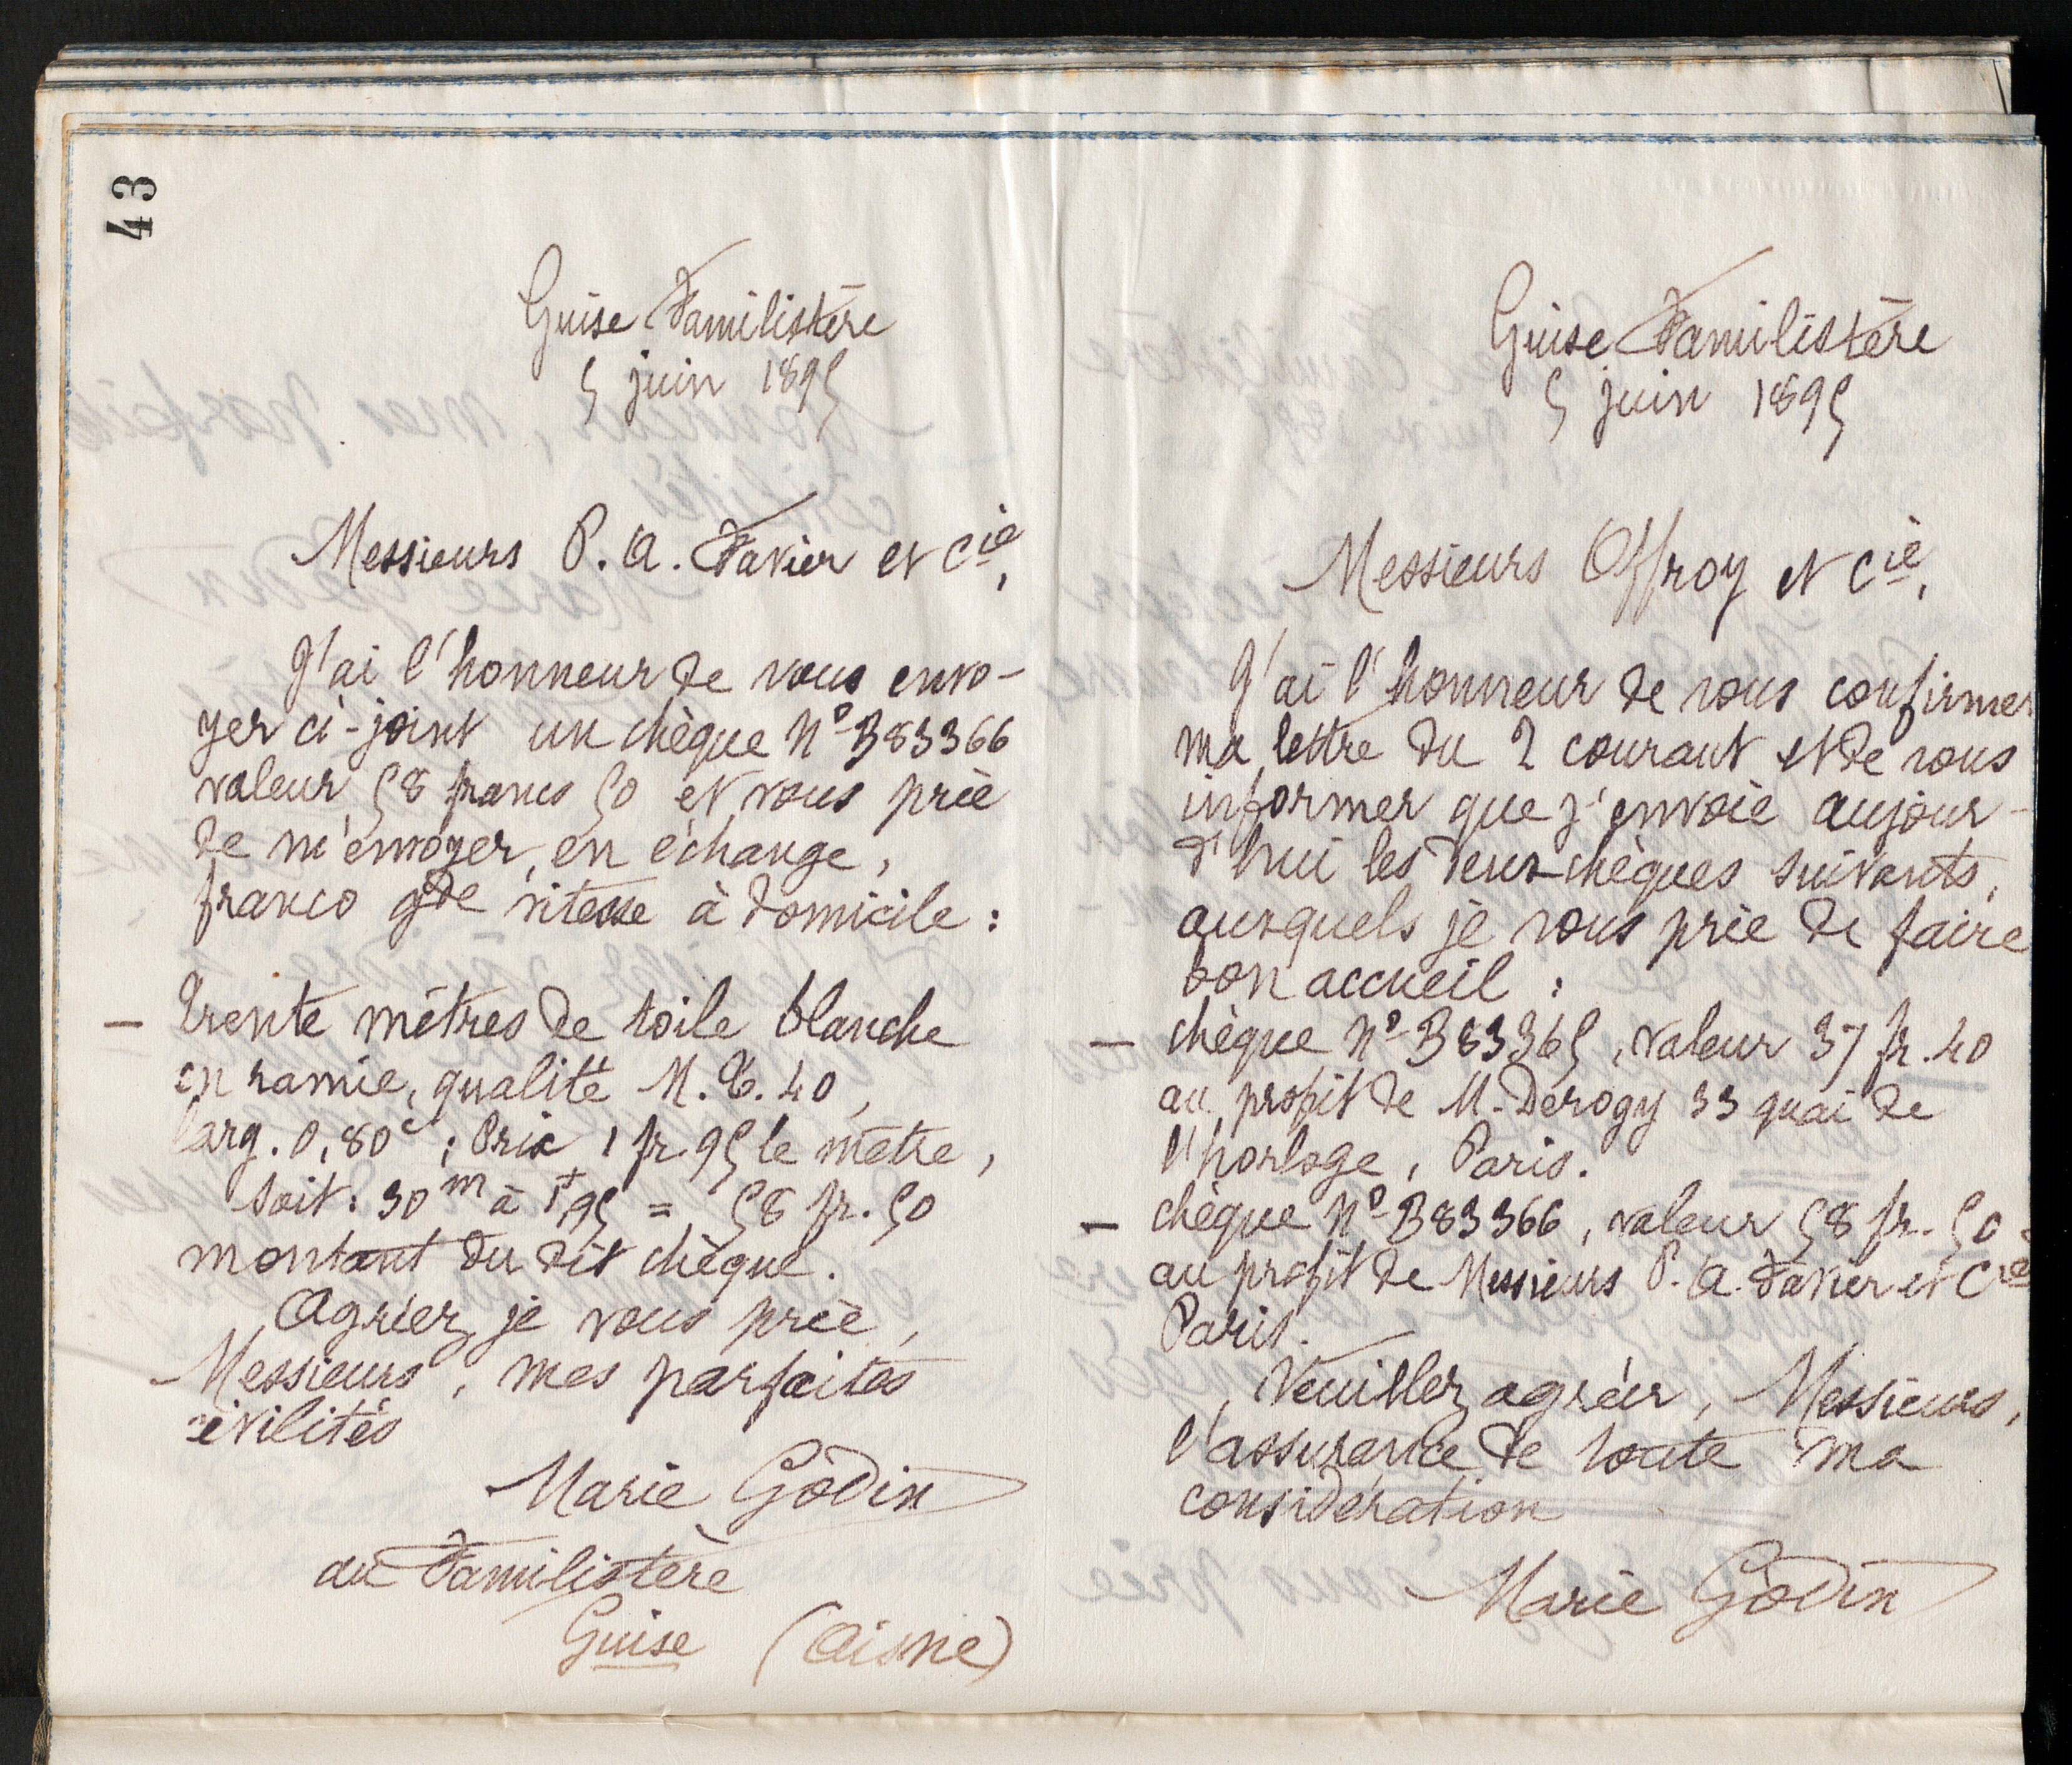 43
Guise Familistère
5 juin 1895
Messieurs P. A. Favier et Cie,
J'ai l'honneur de vous envo-
yer ci-joint un chèque No B83366
valeur 58 francs 50 et vous prie
de m'envoyer, en échange,
franco gde vitesse à domicile :
— Trente mètres de toile blanche
en ramie, qualité M. C. 40,
larg. 0,80c ; Prix 1 fr. 95 le mètre,
soit : 30m à 1f95 = 58 fr. 50
montant du dit chèque.
Agréez, je vous prie,
Messieurs, mes parfaites
civilités
Marie Godin
au Familistère
Guise (Aisne)
Guise Familistère
5 juin 1895
Messieurs Offroy et Cie,
J'ai l'honneur de vous confirmer
ma lettre du 2 courant et de vous
informer que j'envoie aujour-
d'hui les deux chèques suivants,
auxquels je vous prie de faire
bon accueil :
— chèque No B83365, valeur 37 fr. 40
au profit de M. Derogy 33 quai de
l'horloge, Paris.
— chèque No B83366, valeur 58 fr. 50
au profit de Messieurs P. A. Favier et Cie
Paris.
Veuillez agréer, Messieurs,
l'assurance de toute ma
considération
Marie Godin